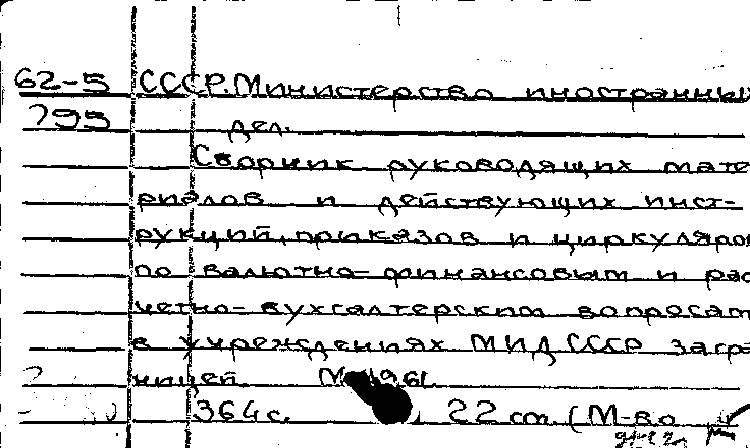 62-5 СССР. Министерство иностранных
795 дел.
Сборник руководящих мате
риалов и действующих инст-
рукций, приказов и циркуляров
по валютно-финансовым и рас
четно-бухгалтерским вопросам
в учреждениях МИД СССР загра
ницей. М., 1961.
364 с. 22 см. (М-во